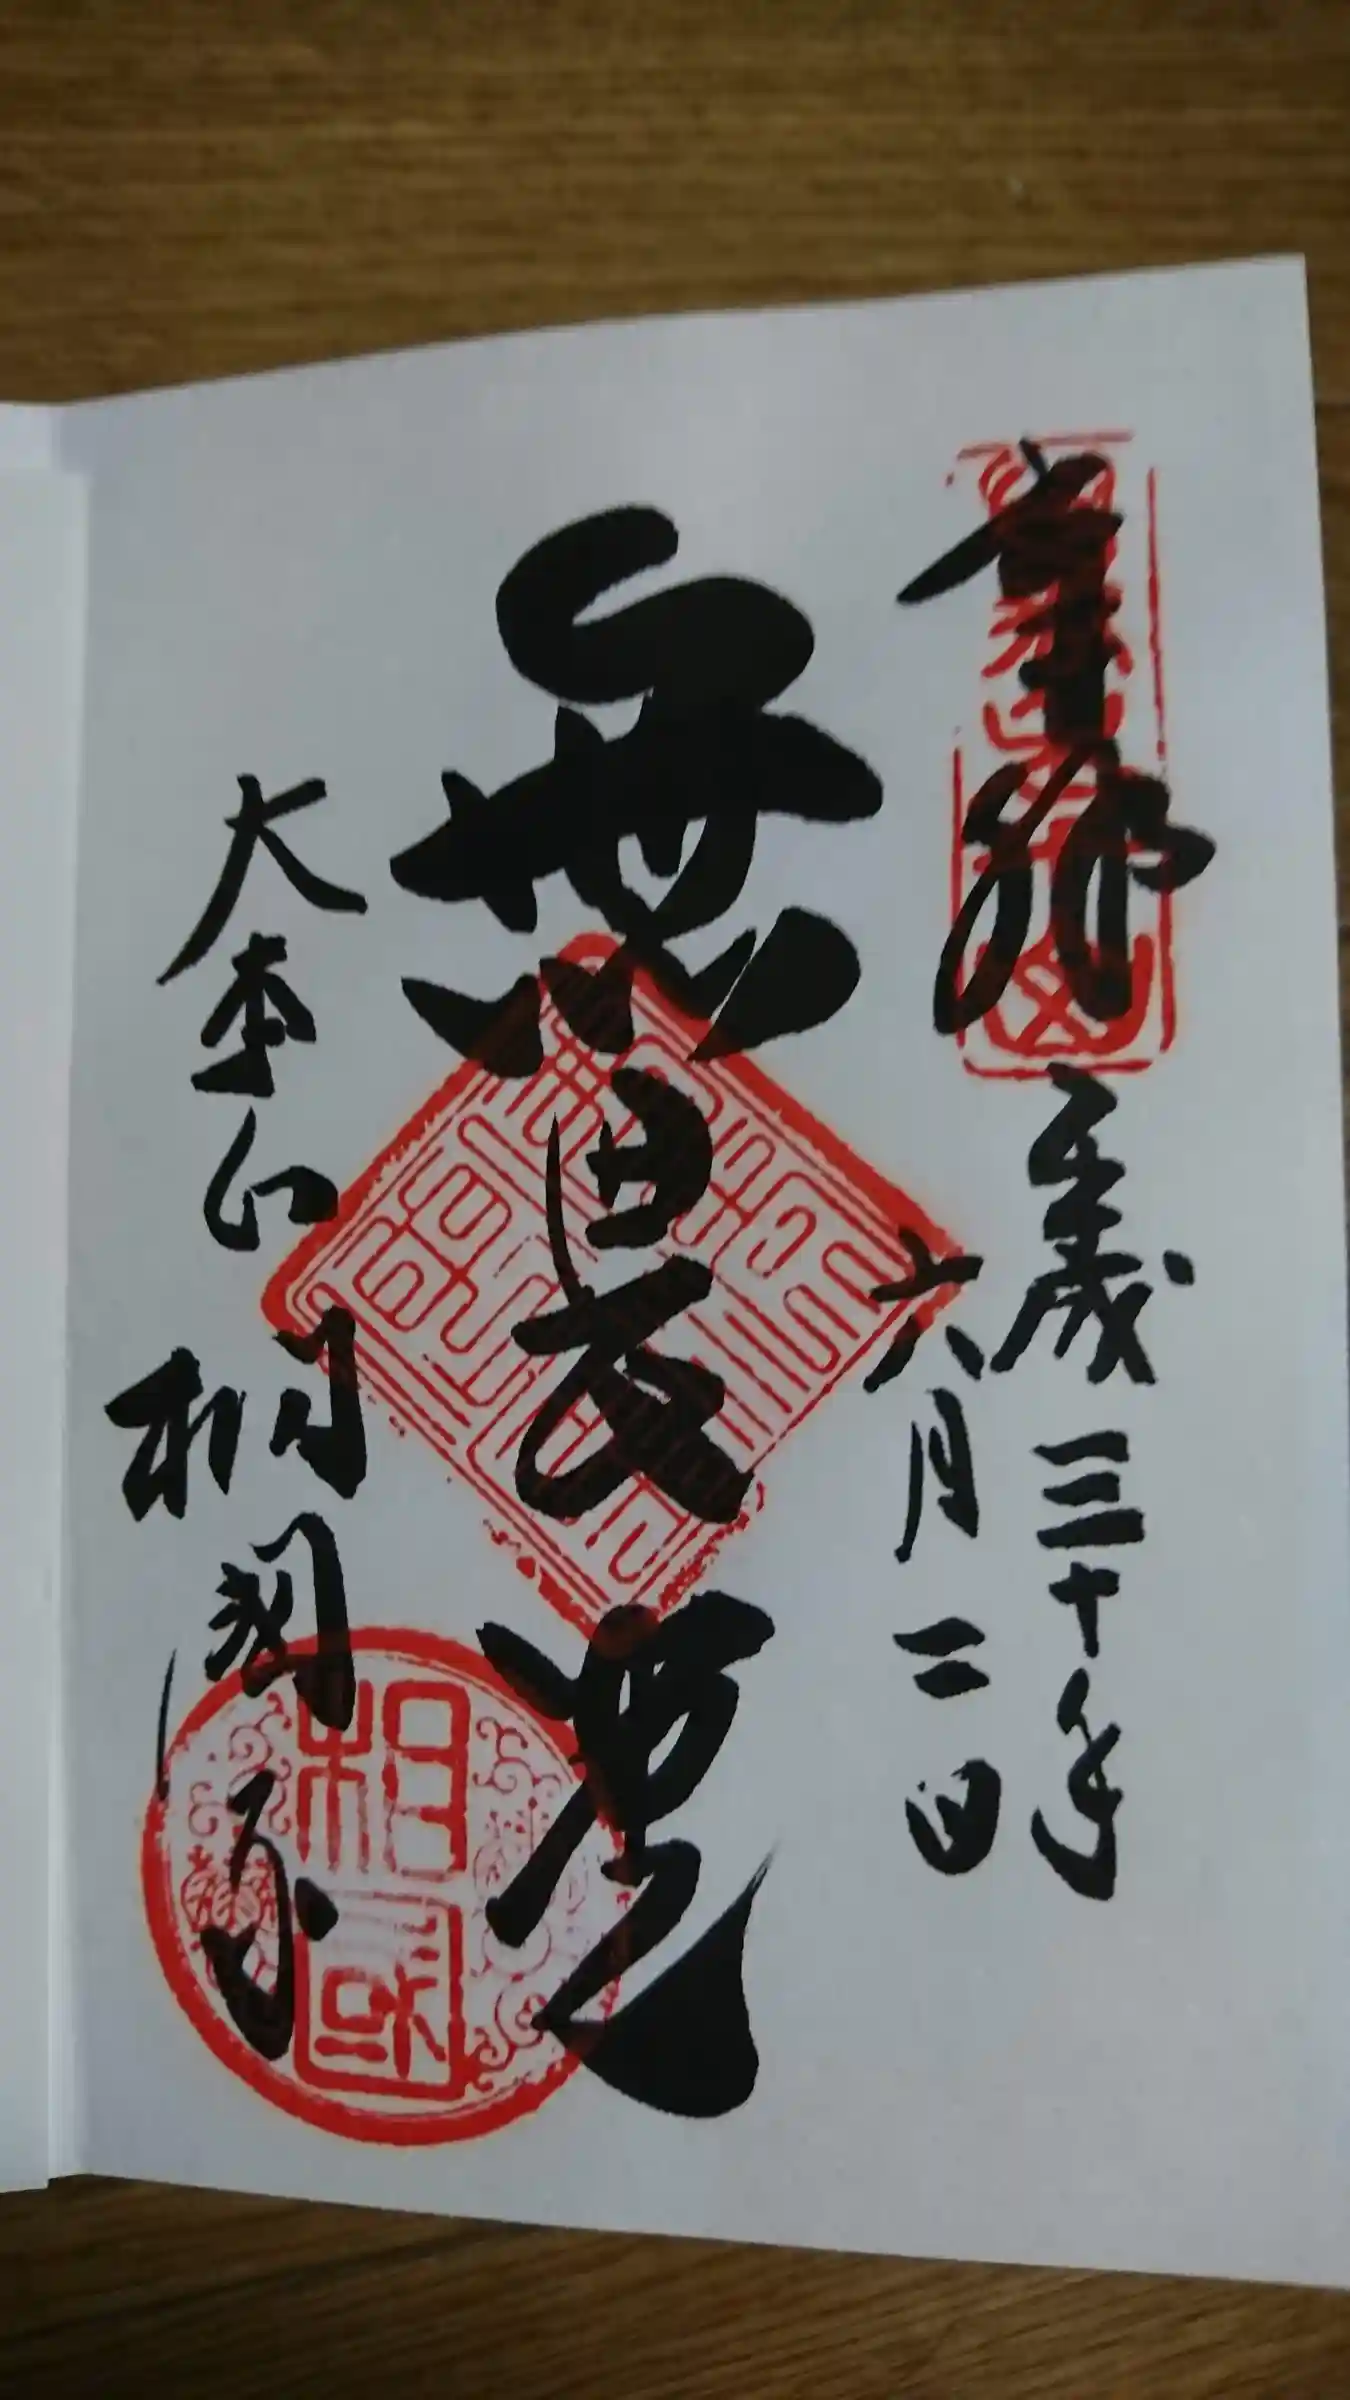 奉拝
平成三十年
六月二日
無畏堂
大本山
相国寺
相国